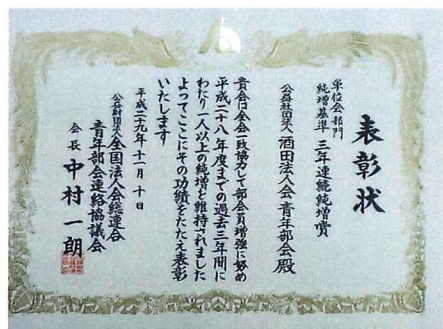 表彰状
単位会部門
純増基準 三年連続純増賞
公益社団法人 酒田法人会 青年部会殿
貴会は全会一致協力して部会員増強に努め
平成二十八年度までの過去三年間に
わたり一人以上の純増を維持されました
よってここにその功績をたたえ表彰
いたします
平成二十九年十一月十日
公益財団法人 全国法人会総連合
青年部会連絡協議会
会長 中村一朗